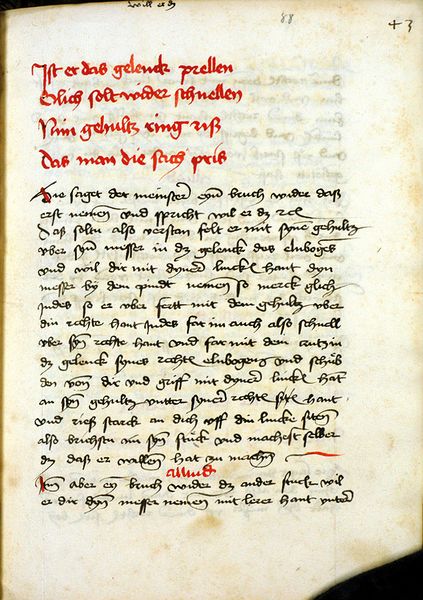 will er dz
88
+3
Ist er das gelenck prellen
Glich solt wider schnellen
Nim gehultz ring uß
Das man die sach pris
Hie saget der meinster eyn bruch wider daß
erst nemen und spricht wil er dz rc
Daß soltu also verstan felt er mit syne gehultz
uber syn messer in dz gelenck des elnbogēs
und wil dir mit dyner linckē hant dyn
messer by dem pindt nemen so merck glich
Indes so er uber fertt mit dem gehultz uber
din rechte hant Indes far im auch also schnell
uber syn rechte hant und far mit dem crutz in
dz gelenck synes rechtē elnbogens und schub
den von dir und griff mit dyner linckē hāt
an syn gehultz untter syner rechtē hant
und rieß starck an dich uff din lincke sitē
also brichstu im syn stuck und machest selber
dz daß er willen hat zu machen
alliud
Itm aber eyn bruch wider dz ander stuck wil
er dir dyn messer nemen mit lerer hant unter